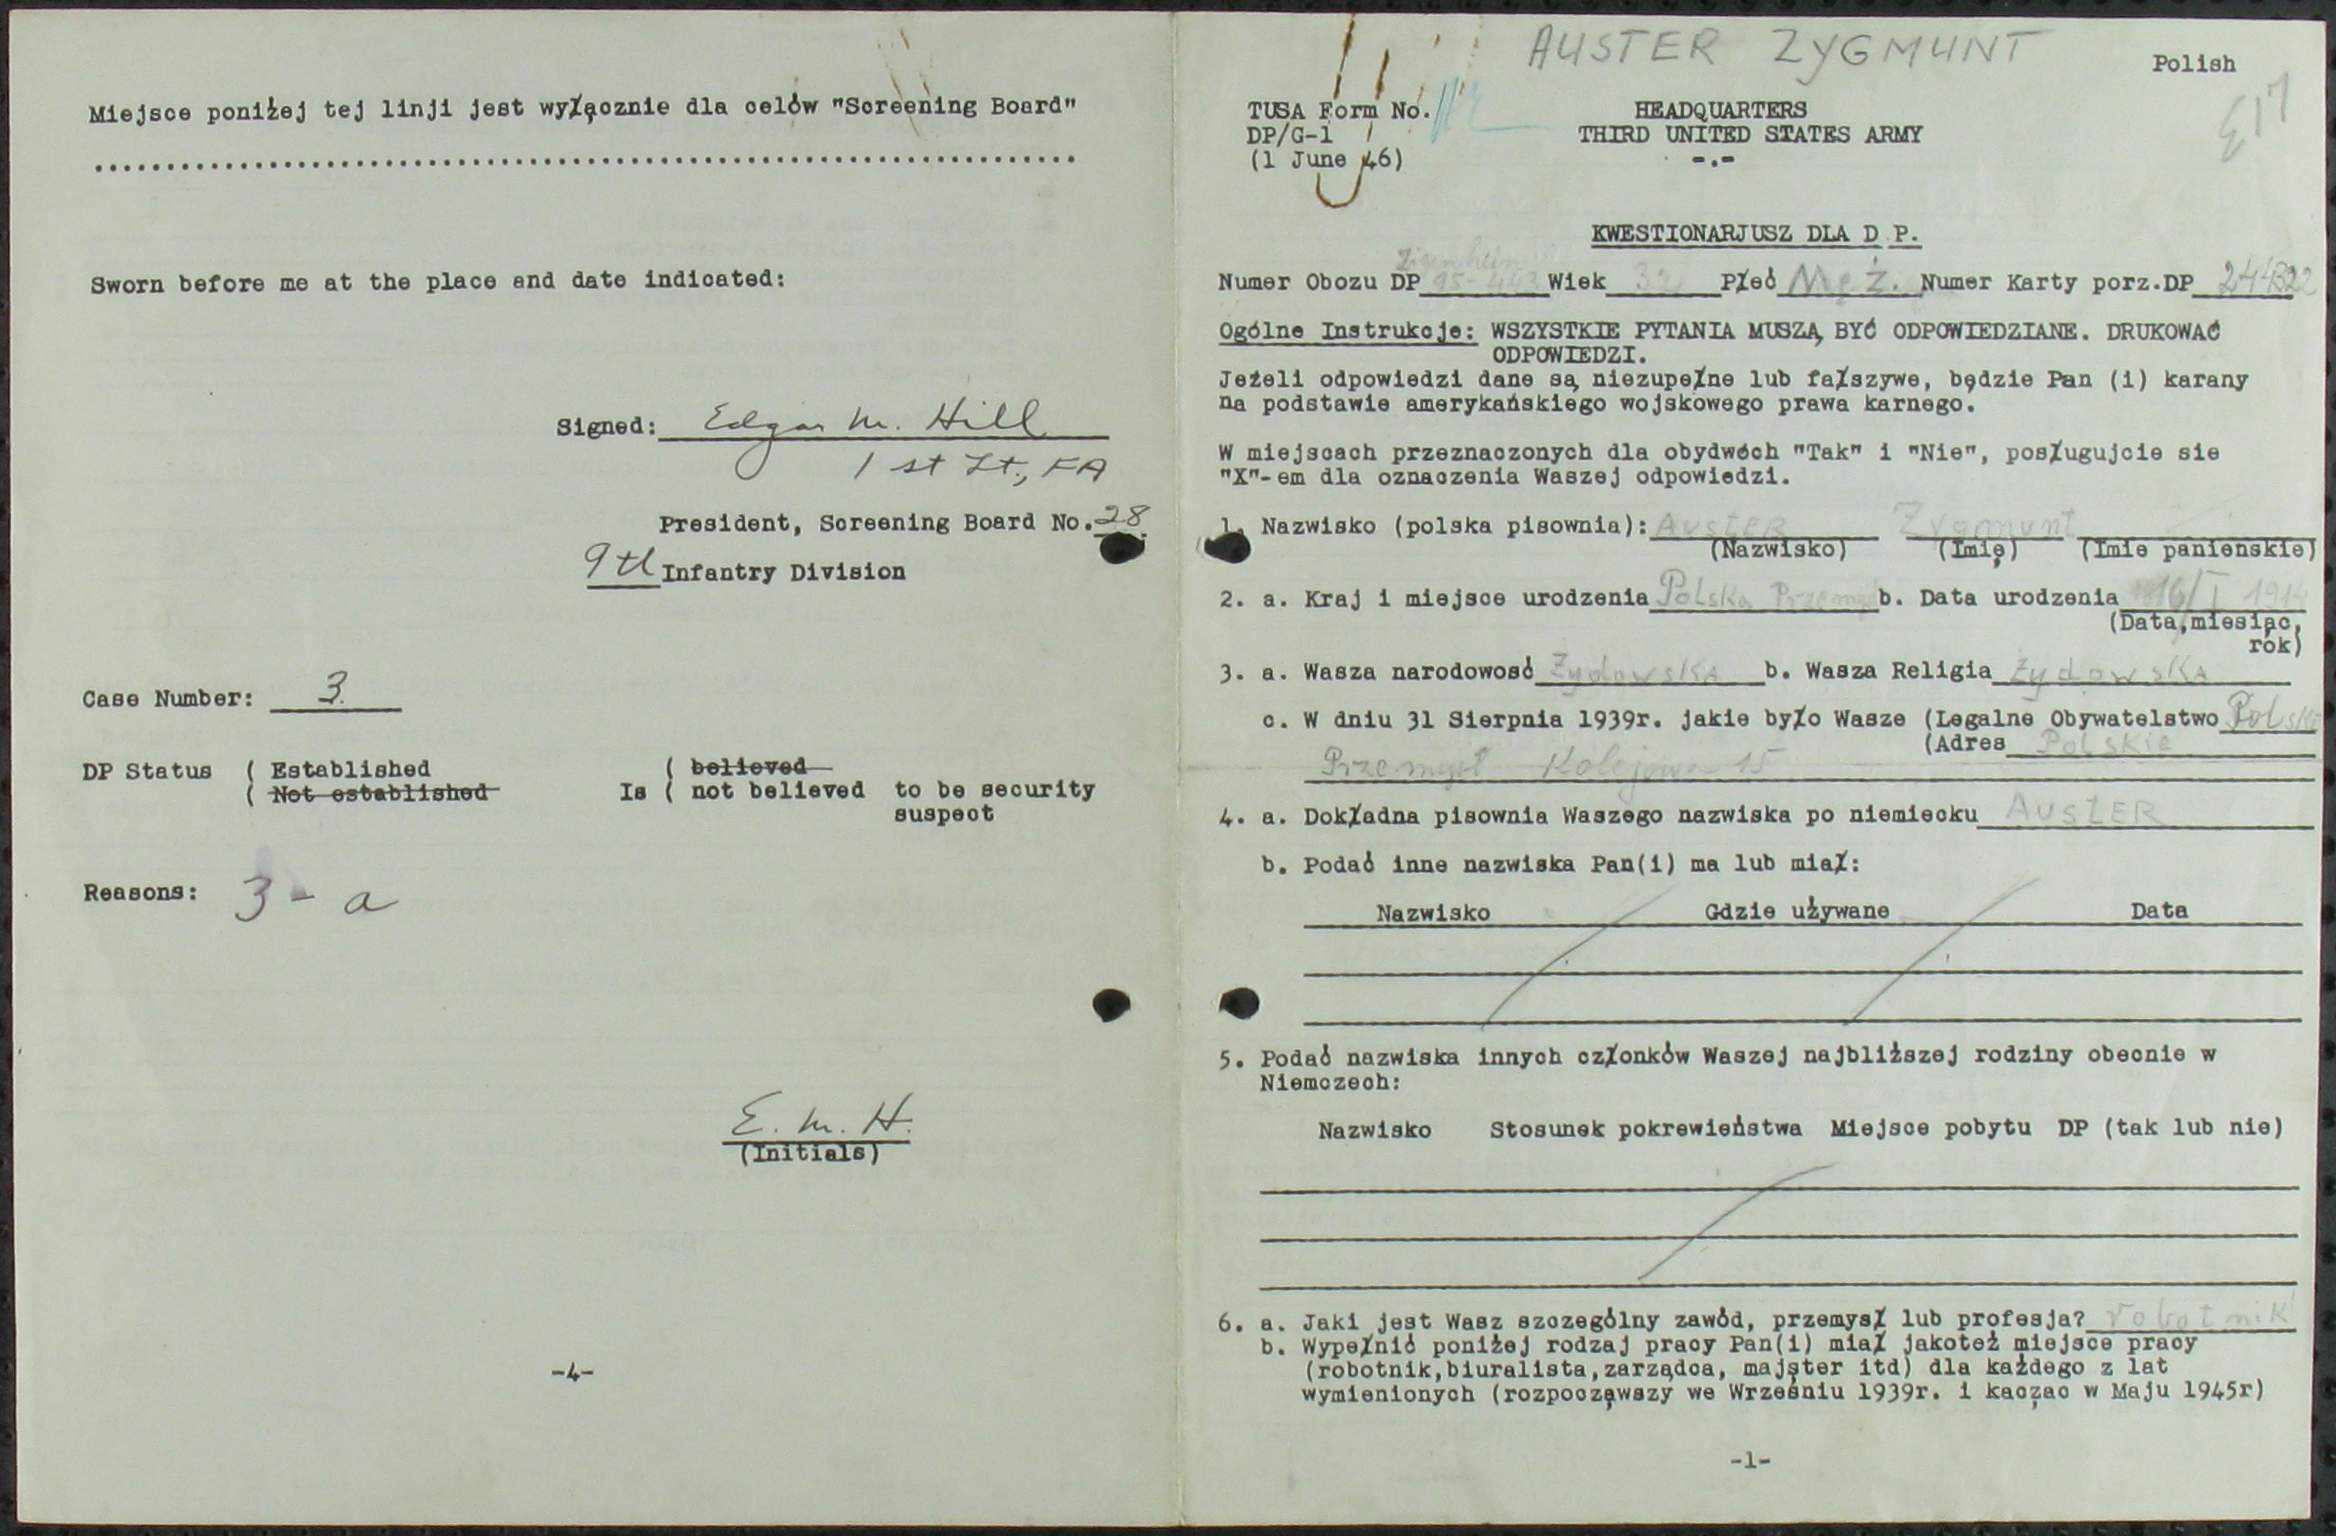 Miejsce poniżej tej linji jest wyłącznie dla celów "Screening Board"
Sworn before me at the place and date indicated:
Signed: Edgar M. Hill
1st Lt., FA
President, Screening Board No. 28
9th Infantry Division
Case Number: 3.
DP Status ( Established Is ( believed to be security
( Not established ( not believed suspect
Reasons: 3 - a
E. M. H.
(Initials)
-4-
AUSTER ZYGMUNT
Polish
E17
TUSA Form No. HEADQUARTERS
DP/G-1 THIRD UNITED STATES ARMY
(1 June 46) -.-
KWESTIONARJUSZ DLA D P.
Numer Obozu DP 95-443 Wiek 32 Płeć Męż. Numer Karty porz.DP
Ogólne Instrukcje: WSZYSTKIE PYTANIA MUSZĄ BYĆ ODPOWIEDZIANE. DRUKOWAĆ
ODPOWIEDZI.
Jeżeli odpowiedzi dane są niezupełne lub fałszywe, będzie Pan (i) karany
na podstawie amerykańskiego wojskowego prawa karnego.
W miejscach przeznaczonych dla obydwóch "Tak" i "Nie", posługujcie sie
"X"-em dla oznaczenia Waszej odpowiedzi.
1. Nazwisko (polska pisownia): AUSTER Zygmunt
(Nazwisko) (Imię) (Imie panienskie)
2. a. Kraj i miejsce urodzenia Polska Przemyśl b. Data urodzenia 16/I 1914
(Data,miesiąc,
rok)
3. a. Wasza narodowosć Żydowska b. Wasza Religia żydowska
c. W dniu 31 Sierpnia 1939r. jakie było Wasze (Legalne Obywatelstwo Polskie
(Adres Polskie
Przemyśl Kolejowa 15
4. a. Dokładna pisownia Waszego nazwiska po niemiecku AUSTER
b. Podać inne nazwiska Pan(i) ma lub miał:
Nazwisko Gdzie używane Data
5. Podać nazwiska innych członków Waszej najbliższej rodziny obecnie w
Niemczech:
Nazwisko Stosunek pokrewieństwa Miejsce pobytu DP (tak lub nie)
6. a. Jaki jest Wasz szczególny zawód, przemysł lub profesja? robotnik
b. Wypełnić poniżej rodzaj pracy Pan(i) miał jakoteż miejsce pracy
(robotnik,biuralista,zarządca, majster itd) dla każdego z lat
wymienionych (rozpocząwszy we Wrześniu 1939r. i kacząc w Maju 1945r)
-1-